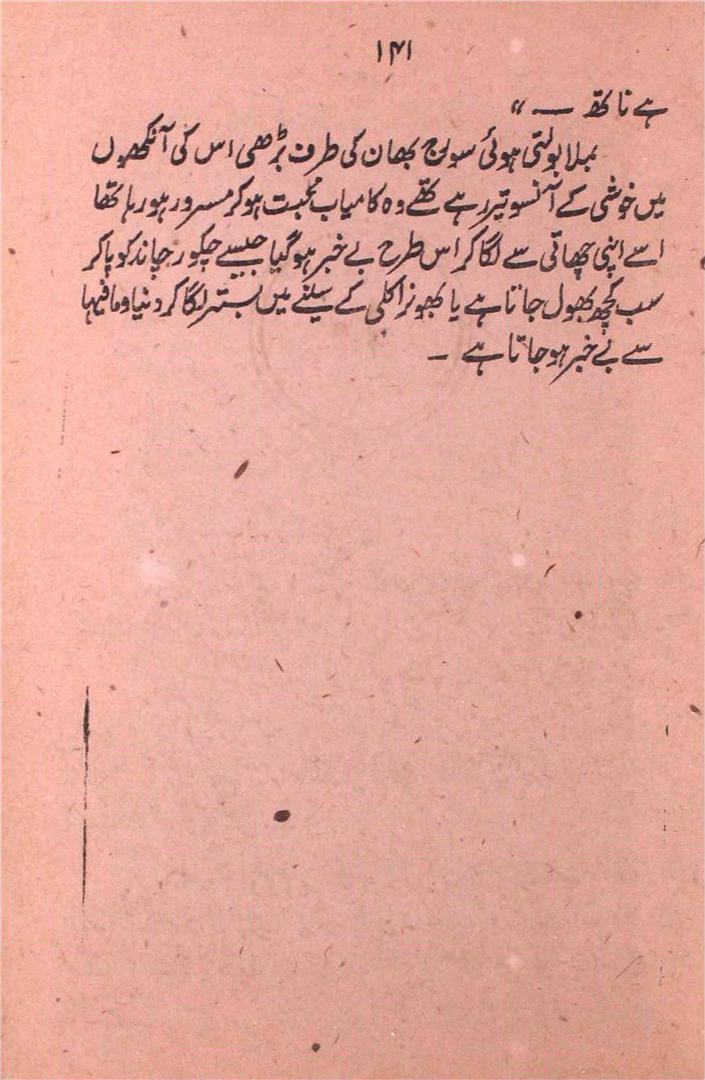 ۱۴۱
ہے ناتھ — "
بملا بولتی ہوئی سورج بھان کی طرف بڑھی اس کی آنکھوں
میں خوشی کے آنسو تیر رہے تھے وہ کامیاب محبت ہو کر مسرور ہو رہا تھا
اسے اپنی چھاتی سے لگا کر اس طرح بے خبر ہو گیا جیسے چکور چاند کو پا کر
سب کچھ بھول جاتا ہے یا بھونرا کلی کے سینے میں بستر لگا کر دنیا و مافیہا
سے بے خبر ہو جاتا ہے ۔